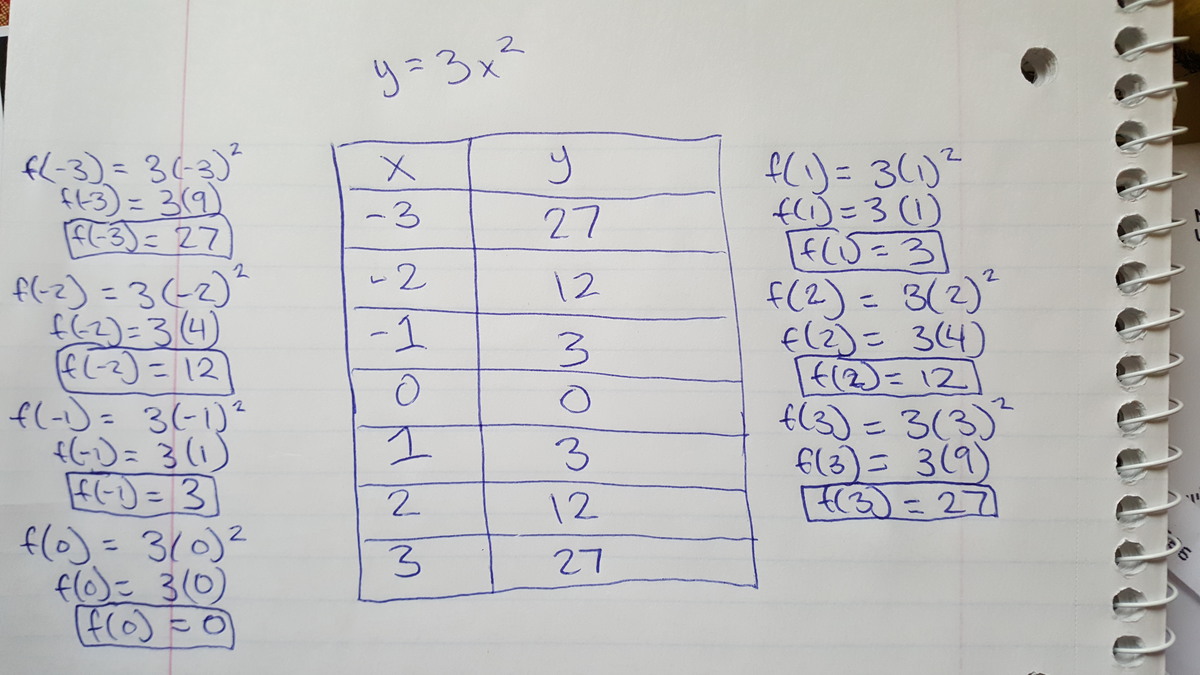 y = 3x²
f(-3) = 3(-3)²
f(-3) = 3(9)
f(-3) = 27
f(-2) = 3(-2)²
f(-2) = 3(4)
f(-2) = 12
f(-1) = 3(-1)²
f(-1) = 3(1)
f(-1) = 3
f(0) = 3(0)²
f(0) = 3(0)
f(0) = 0
x y
-3 27
-2 12
-1 3
0 0
1 3
2 12
3 27
f(1) = 3(1)²
f(1) = 3(1)
f(1) = 3
f(2) = 3(2)²
f(2) = 3(4)
f(2) = 12
f(3) = 3(3)²
f(3) = 3(9)
f(3) = 27